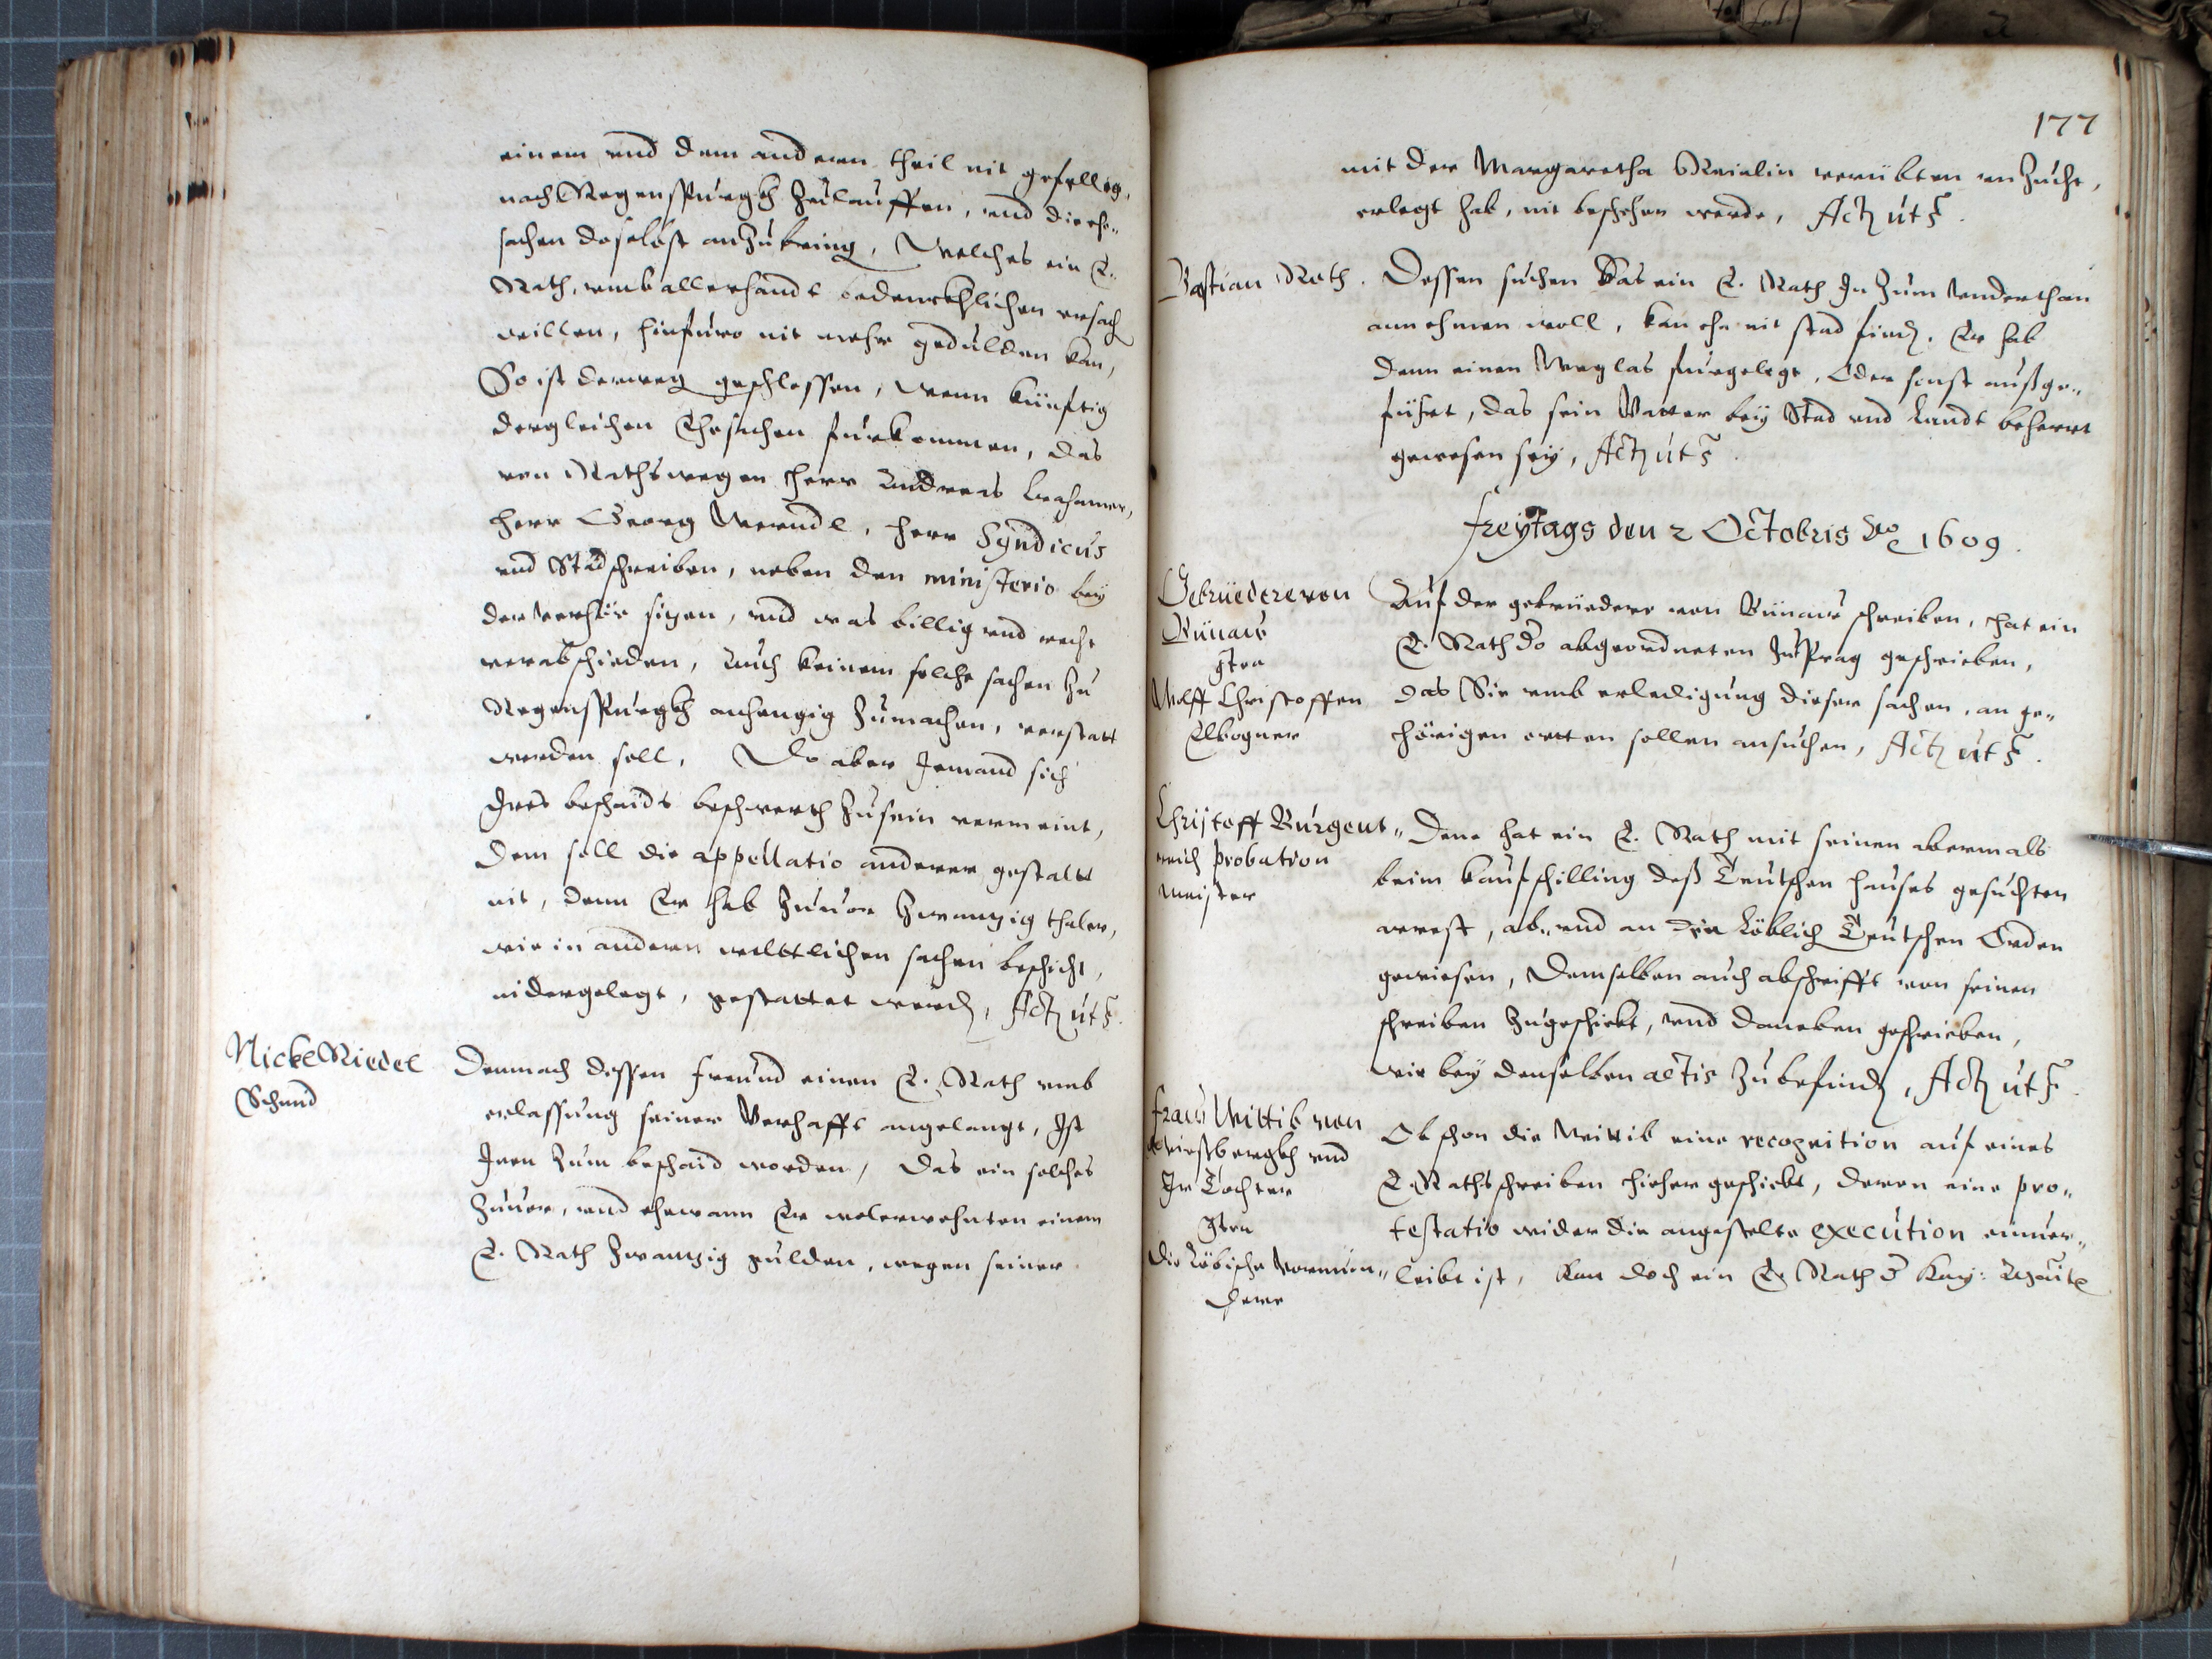 einem und dem anderen theil nit gefellig,
nach Regenspurgkh zulauffen, und die ehe„
sachen daselbst anzubring, Welches ein E.
Rath, umb allerhandt bedenckhlichen ursach
willen, hinfuro nit mehr gedulden kan,
So ist derweg geschlossen, wenn künftig
dergleichen Ehesachen furkommen, das
von Rathswegen herr Andreas
herr Georg Werndl, herr Syndicus
und Stadschreiben, neben den ministerio bey
der verhör sizen, und was billig und recht
verabschieden, Auch keinem solche sachen zu
Regenspurgkh anhengig zumachen, verstatt
werden soll, Do aber Jemand sich
Ires beschaids beschwerth zusein vermeint,
Dem soll die appellatio anderer gestaltt
nit, denn Er hab zuuor zwanzig thaler,
wie in andern welttlichen sachen beschicht,
nidergelegt, gestattet werd, Act ut s.
Nickel Riedel
Schmid
Demnach dessen freund einen E. Rath umb
erlassung seiner Verhafft angelangt, Ist
Inen zum beschaid worden, Das ein solches
zuuor, und ehewann Er wolerwehnten einem
E. Rath zwanzig gulden, wegen seiner
177
mit der Margaretha verübten unzucht,
erlegt hab, nit beschehen werde, Act ut s.
Bastian Roth.
Dessen suchen das ein E. Rath In zum Underthan
annehmen woll, kan ehe nit stad find, Er hab
dann einen Weglas furgelegt, Oder sonst außge„
führt, das sein Vatter bey Stad und Landt beherrt
gewesen sey, Act ut s.
Freytags den 2 Octobris Ao 1609.
Gebrüedere von
Bünaw
Itra
Wolff Christoffen
Elbogner
Auf der gebrüedere von Bünaw schreiben, hat ein
E. Rath do abgeordneten zu Prag geschrieben,
das Sie umb erledigung dieser sachen, an ge„
hörigen ortten sollen ansuchen, Act ut s.
Christoff Burgent„
reich probation
meister
Dene hat ein E. Rath mit seinen abermals
beim kaufschilling deß Teutschen hauses gesuchten
arrest, ab„ und an die Löblich Teutschen Orden
gewiesen, demselben auch abschrifft von seinen
schreiben zugeschickt, und daneben geschrieben,
wie bey denselben actis zubefind, Act ut s.
Fraw Wittib von
und
Ir Tochter
Itra
Die Vormün„
dere
Ob schon die Wittib eine recognition auf eines
E. Raths schreiben hieher geschickt, deren eine pro„
testatio wider die angestelte execution einuer„
leibt ist, Kan doch ein E. Rath d Kay: Maüt